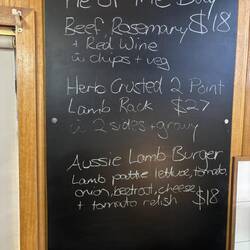 Pie Of The Day
Beef Rosemary $18
+ Red Wine
w chips + veg
Herb Crusted 2 Point
Lamb Rack $27
w 2 sides + gravy
Aussie Lamb Burger
Lamb pattie lettuce, tomato,
onion, beetroot, cheese
+ tomato relish $18